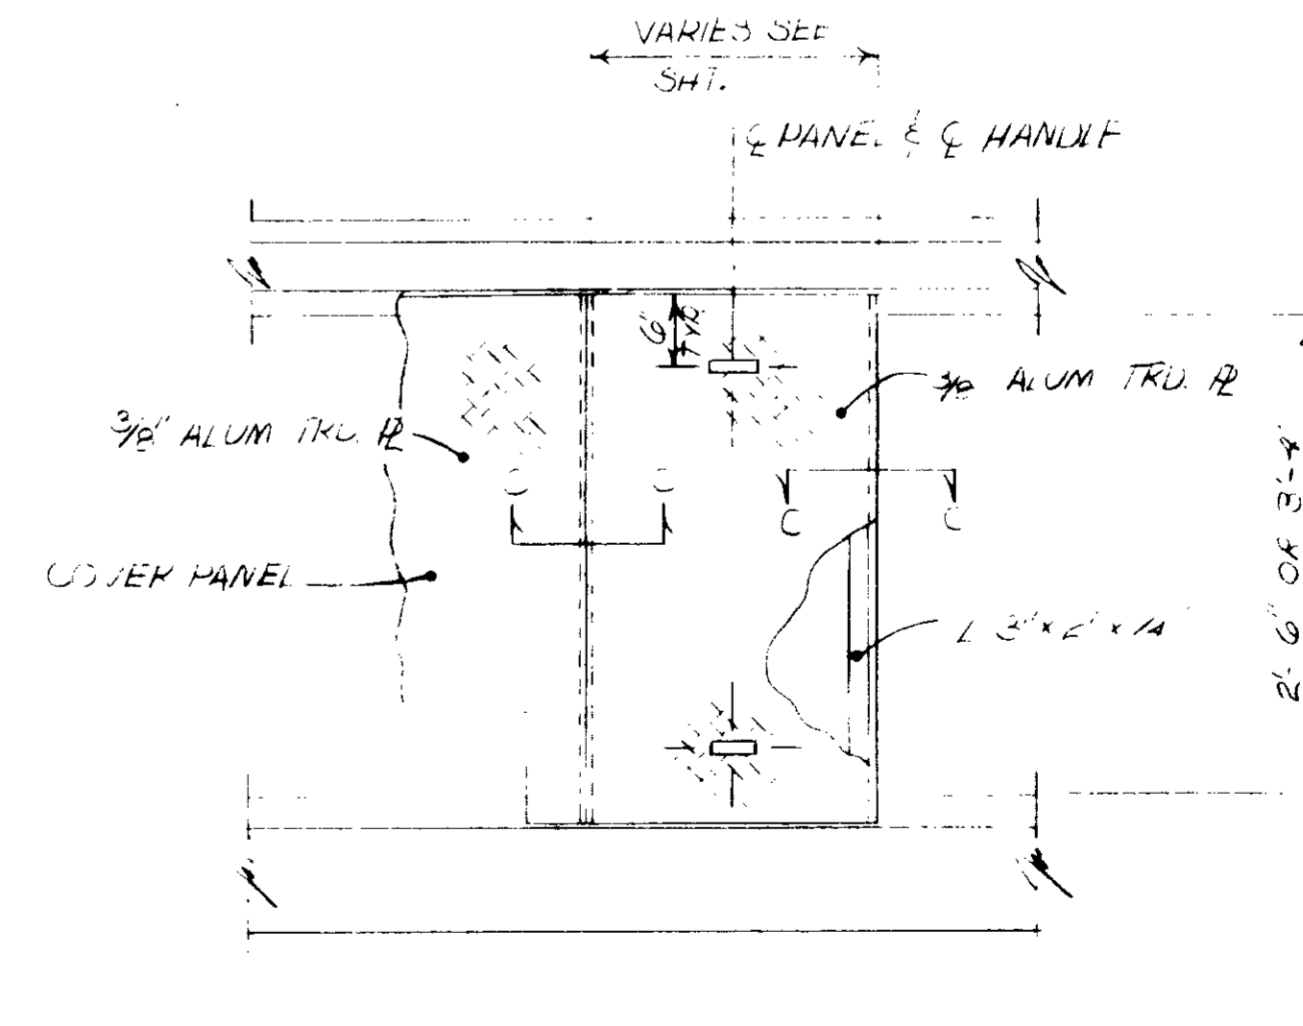 VARIES SEE
SHT.
℄ PANEL & ℄ HANDLE
6" TYP.
3/8 ALUM TRD. PL
3/8" ALUM TRD. PL
C C
C C
COVER PANEL
L 3" x 2" x 1/4"
2'-6" OR 3'-4"